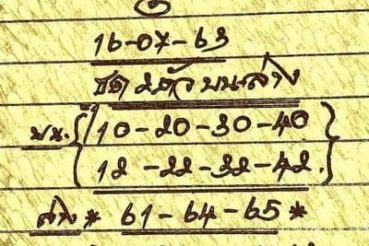 16-07-63
ชุด 2 ตัว บน-ล่าง
บน. { 10-20-30-40
12-22-32-42. }
ล่าง * 61-64-65 *